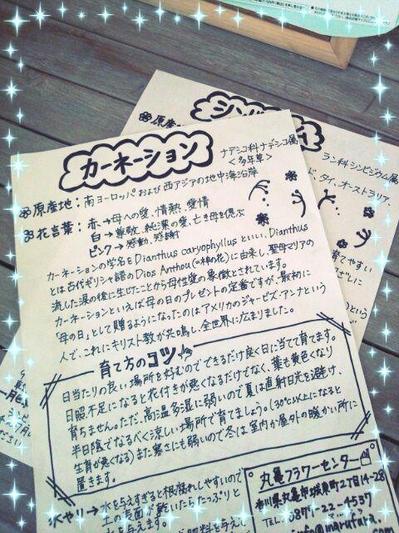 シンビジウム
原産
ラン科シンビジウム属
ダイ、オーストラリア、
カーネーション
ナデシコ科ナデシコ属
<多年草>
原産地：南ヨーロッパおよび西アジアの地中海沿岸
花言葉：赤→母への愛、情熱、愛情
白→尊敬、純潔の愛、亡き母を偲ぶ
ピンク→感動、感謝
カーネーションの学名をDianthus caryophyllusといい、Dianthus
とは古代ギリシャ語のDios Anthou(=神の花)に由来し、聖母マリアの
流した涙の後に生じたことから母性愛の象徴とされています。
カーネーションといえば母の日のプレゼントの定番ですが、最初に
「母の日」として贈るようになったのはアメリカのジャービス・アンナという
人で、これにキリスト教が共鳴し、全世界に広まりました。
育て方のコツ
日当たりの良い場所を好むのでできるだけ良く日に当て育てます。
日照不足になると花付きが悪くなるだけでなく、葉も黄色くなり
育ちません。ただ、高温多湿に弱いので夏は直射日光を避け、
半日陰でなるべく涼しい場所で育てましょう。(30℃以上になると
生育が悪くなる)また寒さにも弱いので冬は室内か屋外の暖かい所に
置きます。
水やり→水を与えすぎると根腐れしやすいので
土の表面が乾いたらたっぷりと
水を与えます。
丸亀フラワーセンター
香川県丸亀市城東町2丁目14-28
TEL 0877-22-4537